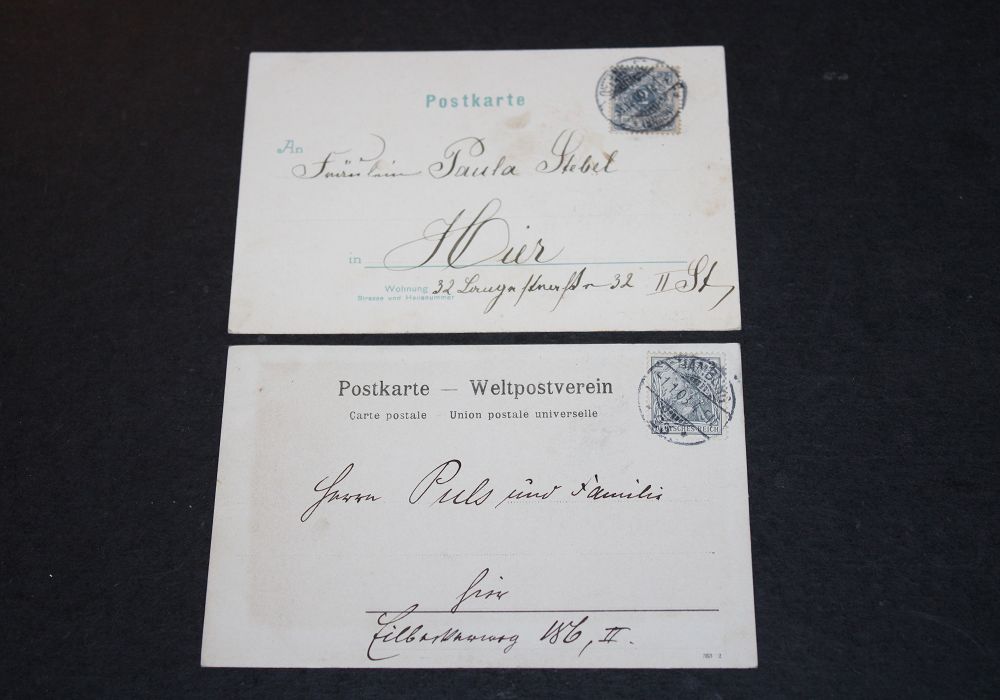 Postkarte
An
Fräulein Paula Stebel
in Hier
Wohnung 32 Langestrasse 32 II St,
Strasse und Hausnummer
Postkarte — Weltpostverein
Carte postale – Union postale universelle
DEUTSCHES REICH
Herrn Puls und Familie
hier
Eilbeckerweg 186, II.